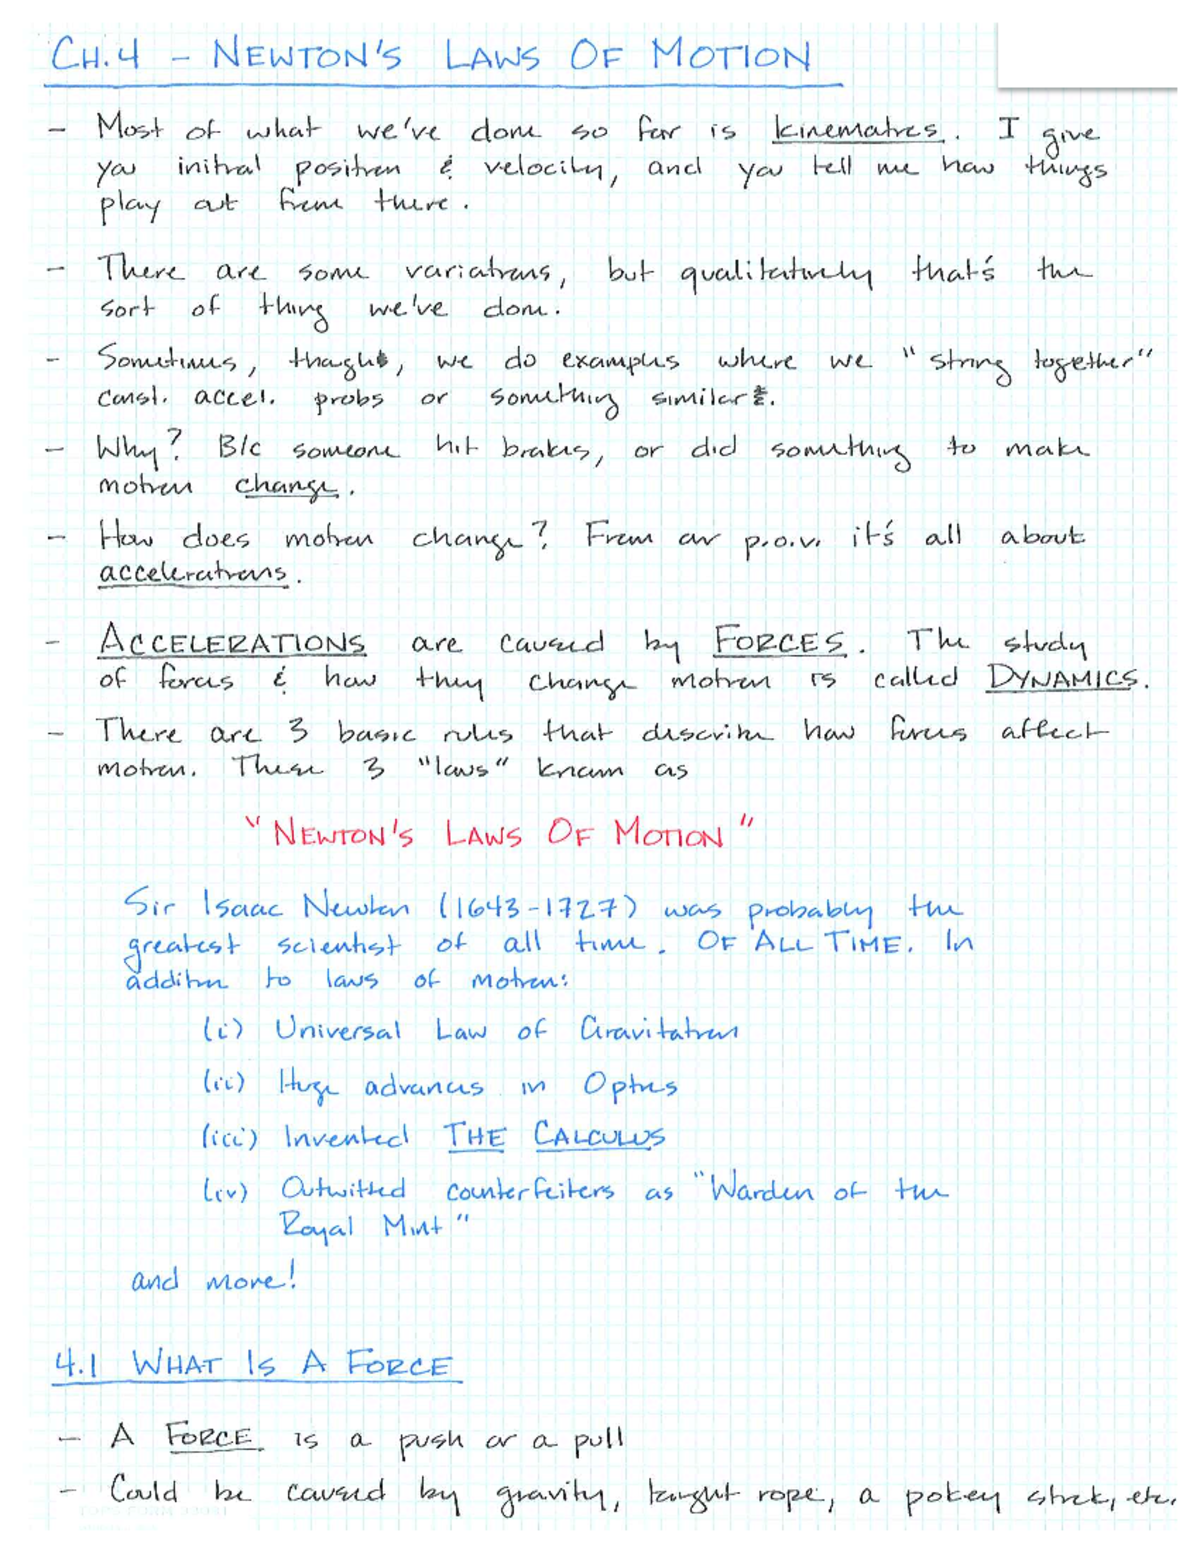 CH.4 - NEWTON'S LAWS OF MOTION
- Most of what we've done so far is kinematics. I give
you initial position & velocity, and you tell me how things
play out from there.
- There are some variations, but qualitatively that's the
sort of thing we've done.
- Sometimes, though, we do examples where we "string together"
const. accel. probs or something similar.
- Why? B/c someone hit brakes, or did something to make
motion change.
- How does motion change? From our p.o.v. it's all about
accelerations.
- ACCELERATIONS are caused by FORCES. The study
of forces & how they change motion is called DYNAMICS.
- There are 3 basic rules that describe how forces affect
motion. These 3 "laws" known as
"NEWTON'S LAWS OF MOTION"
Sir Isaac Newton (1643-1727) was probably the
greatest scientist of all time. OF ALL TIME. In
addition to laws of motion:
(i) Universal Law of Gravitation
(ii) Huge advances in Optics
(iii) Invented THE CALCULUS
(iv) Outwitted counterfeiters as "Warden of the
Royal Mint"
and more!
4.1 WHAT IS A FORCE
- A FORCE is a push or a pull
- Could be caused by gravity, taught rope, a pokey stick, etc.